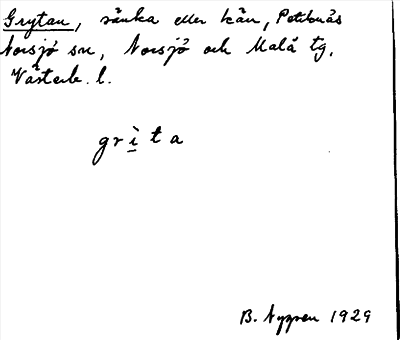 Grytan, sänka eller kärr, Petiknäs
Norsjö sn, Norsjö och Malå tg.
Västerb. l.
grì̱ta
B. Nygren 1929